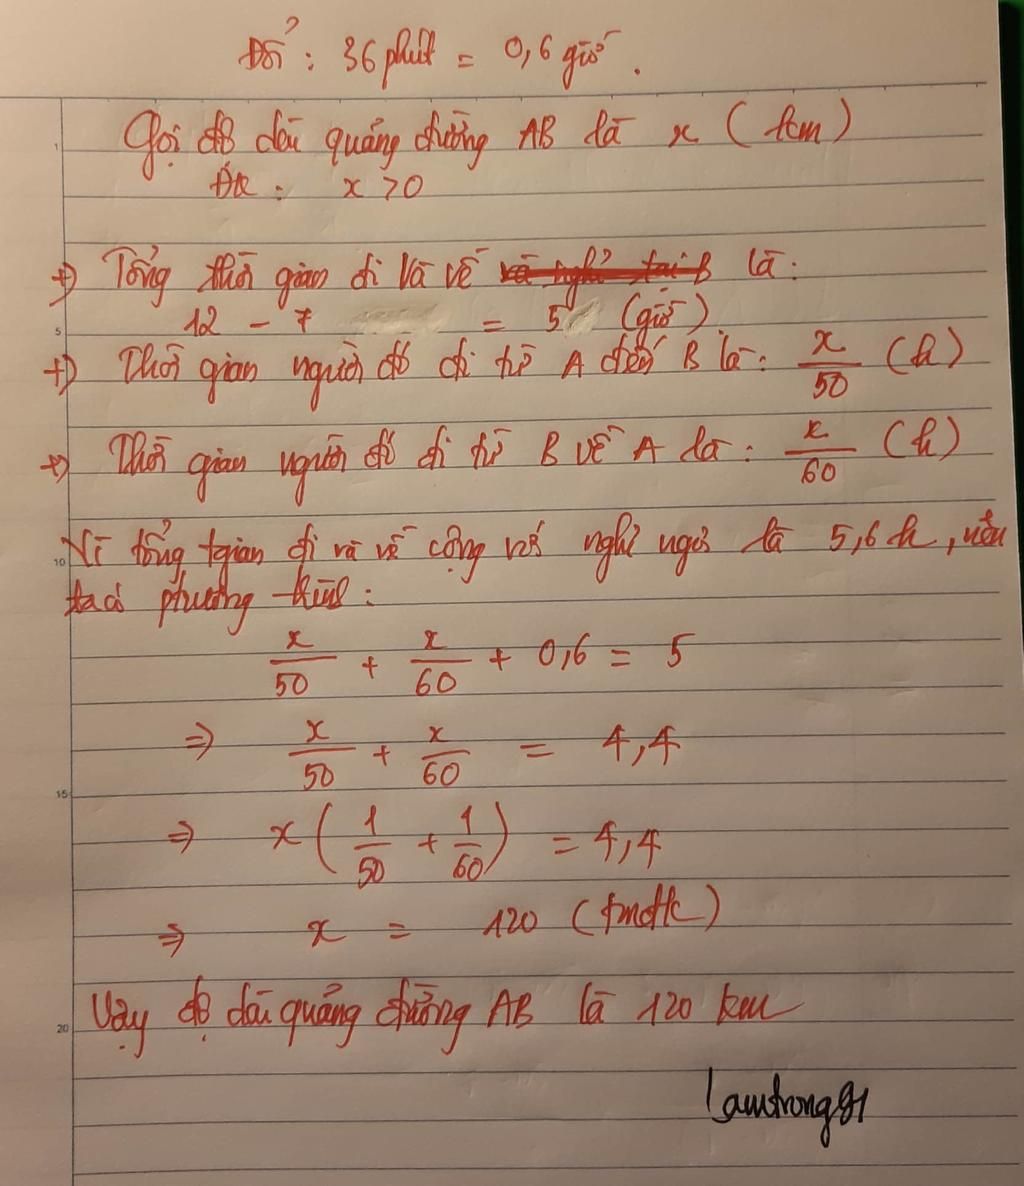 Đổi : 36 phút = 0,6 giờ .
Gọi độ dài quảng đường AB là x ( km )
Đk : x > 0
+) Tổng thời gian đi và về là :
12 - 7 = 5 (giờ)
+) Thời gian người đó đi từ A đến B là : x/50 (h)
+) Thời gian người đó đi từ B về A là : x/60 (h)
Vì tổng tgian đi và về cộng với nghỉ ngơi là 5,6 h , nên
ta có phương trình :
x/50 + x/60 + 0,6 = 5
⇒ x/50 + x/60 = 4,4
⇒ x ( 1/50 + 1/60 ) = 4,4
⇒ x = 120 (tmđk)
Vậy độ dài quảng đường AB là 120 km
lamtrong91
1
5
10
15
20